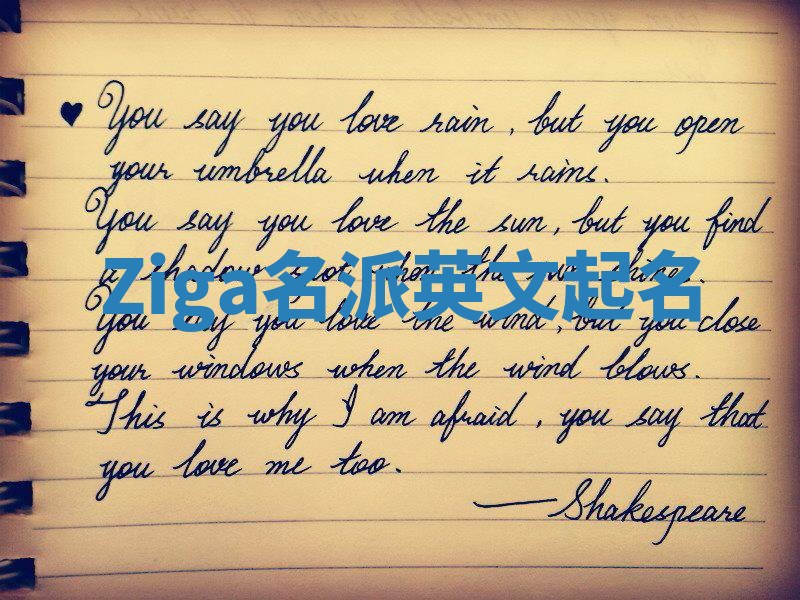 ♥ You say you love rain, but you open
your umbrella when it rains.
You say you love the sun, but you find
a shadow spot when the sun shines.
Ziga名派英文起名
You say you love the wind, but you close
your windows when the wind blows.
This is why I am afraid, you say that
you love me too.
—Shakespeare